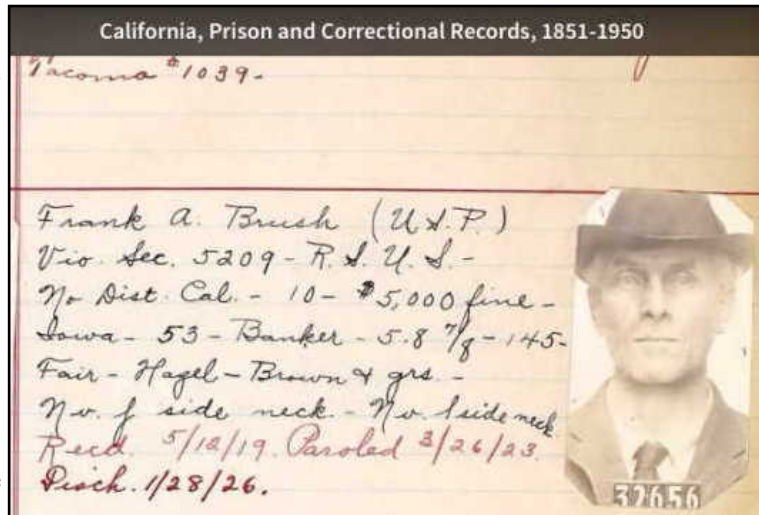 California, Prison and Correctional Records, 1851-1950
Tacoma #1039-
Frank A. Brush (U.S.P.)
Vio. Sec. 5209 - R.S.U.S. -
No Dist. Cal. - 10 - $5,000 fine -
Iowa - 53 - Banker - 5.8 7/8 - 145-
Fair - Hazel - Brown & grs. -
Nv. f side neck. - Nv. l side neck
Recd. 5/12/19. Paroled 3/26/23.
Disch. 1/28/26.
32656